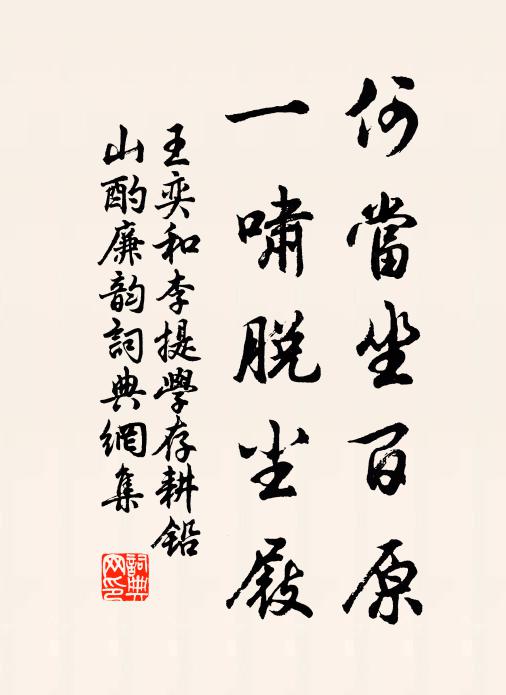 何當坐百原
一嘯脫尘屐
王奕和李提學存耕鉛
山酌廉韵詞典網集
詞典
网印